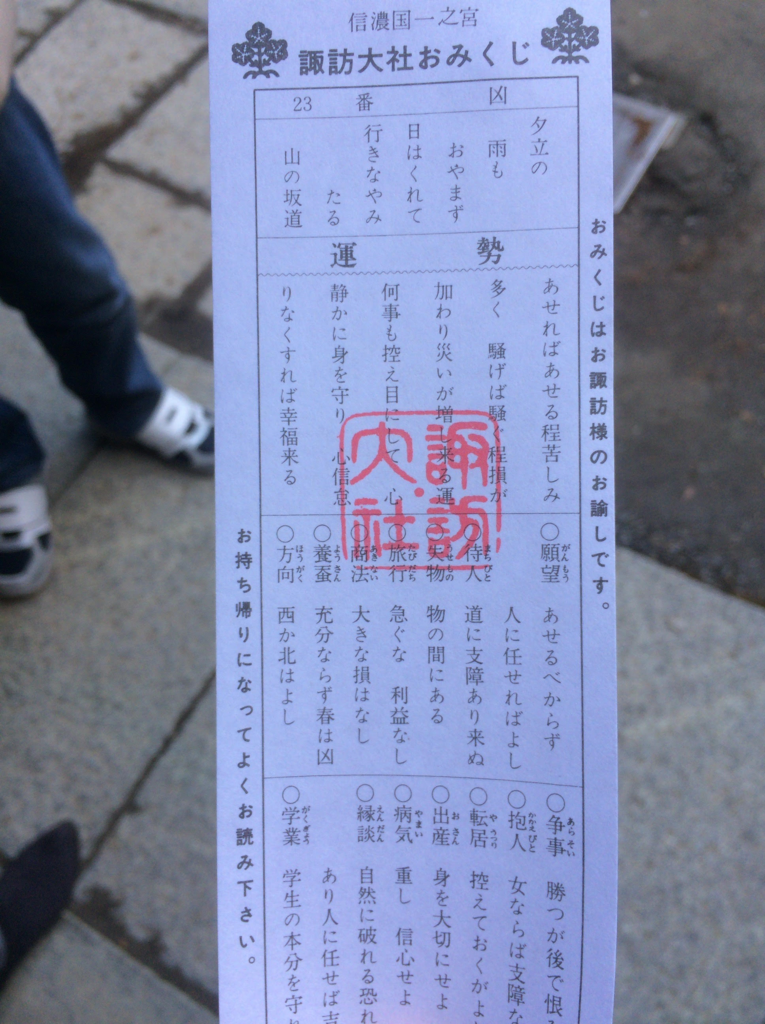 信濃国一之宮
諏訪大社おみくじ
23 番 凶
夕立の
雨も
おやまず
日はくれて
行きなやみ
たる
山の坂道
運勢
あせればあせる程苦しみ
多く 騒げば騒ぐ程損が
加わり災いが増し来る運
何事も控え目にして 心
静かに身を守り 心信怠
りなくすれば幸福来る
○願望 がんもう あせるべからず
人に任せればよし
○待人 まちびと 道に支障あり来ぬ
○失物 うせもの 物の間にある
○旅行 たびだち 急ぐな 利益なし
○商法 あきない 大きな損はなし
○養蚕 ようさん 充分ならず春は凶
○方向 ほうがく 西か北はよし
○争事 あらそい 勝つが後で恨み
○抱人 かかえびと 女ならば支障な
○転居 やうつり 控えておくがよ
○出産 おさん 身を大切にせよ
○病気 やまい 重し 信心せよ
○縁談 えんだん 自然に破れる恐れ
あり人に任せば吉
○学業 がくぎょう 学生の本分を守り
おみくじはお諏訪様のお諭しです。
お持ち帰りになってよくお読み下さい。
諏訪
大社